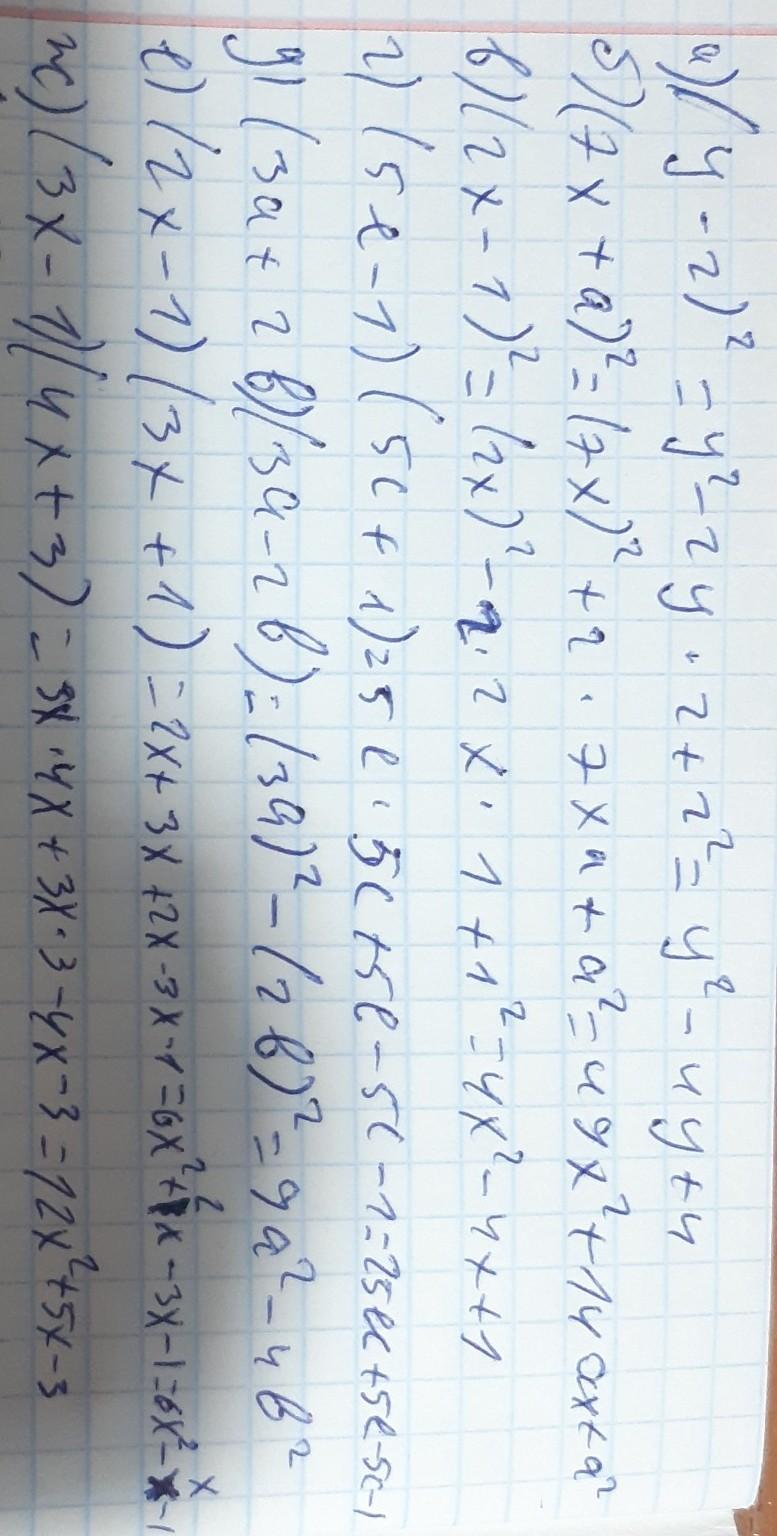 а) (y - 2)² = y² - 2y · 2 + 2² = y² - 4y + 4
б) (7x + a)² = (7x)² + 2 · 7xa + a² = 49x² + 14ax + a²
в) (2x - 1)² = (2x)² - 2 · 2x · 1 + 1² = 4x² - 4x + 1
г) (5l - 1)(5c + 1) = 5l · 5c + 5l - 5c - 1 = 25lc + 5l - 5c - 1
д) (3a + 2b)(3a - 2b) = (3a)² - (2b)² = 9a² - 4b²
е) (2x - 1)(3x + 1) = 2x + 3x + 2x - 3x - 1 = 6x² + 2x - 3x - 1 = 6x² - x - 1
ж) (3x - 1)(4x + 3) = 3x · 4x + 3x · 3 - 4x - 3 = 12x² + 5x - 3